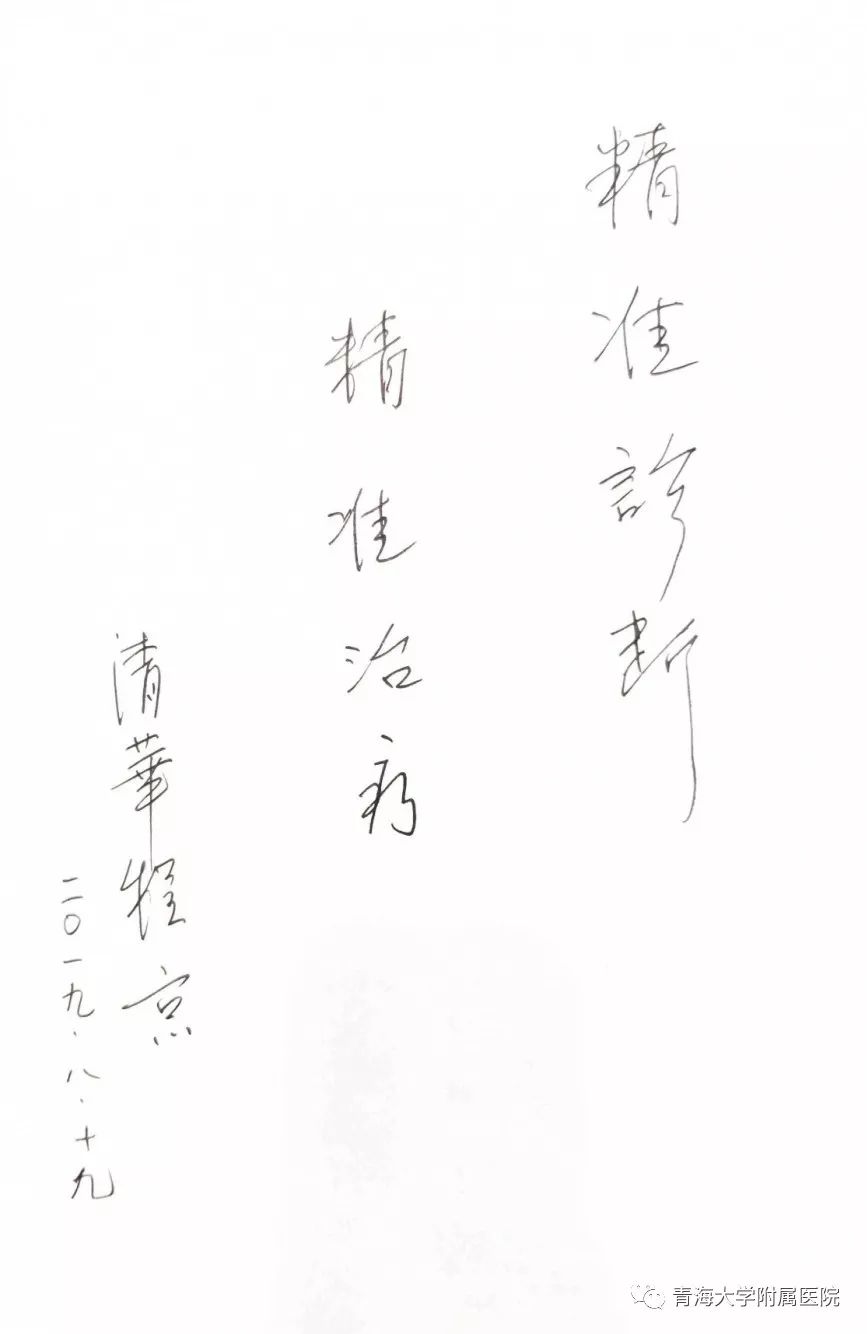 精准診断
精准治疗
清華程京
二〇一九.八.十九
青海大学附属医院